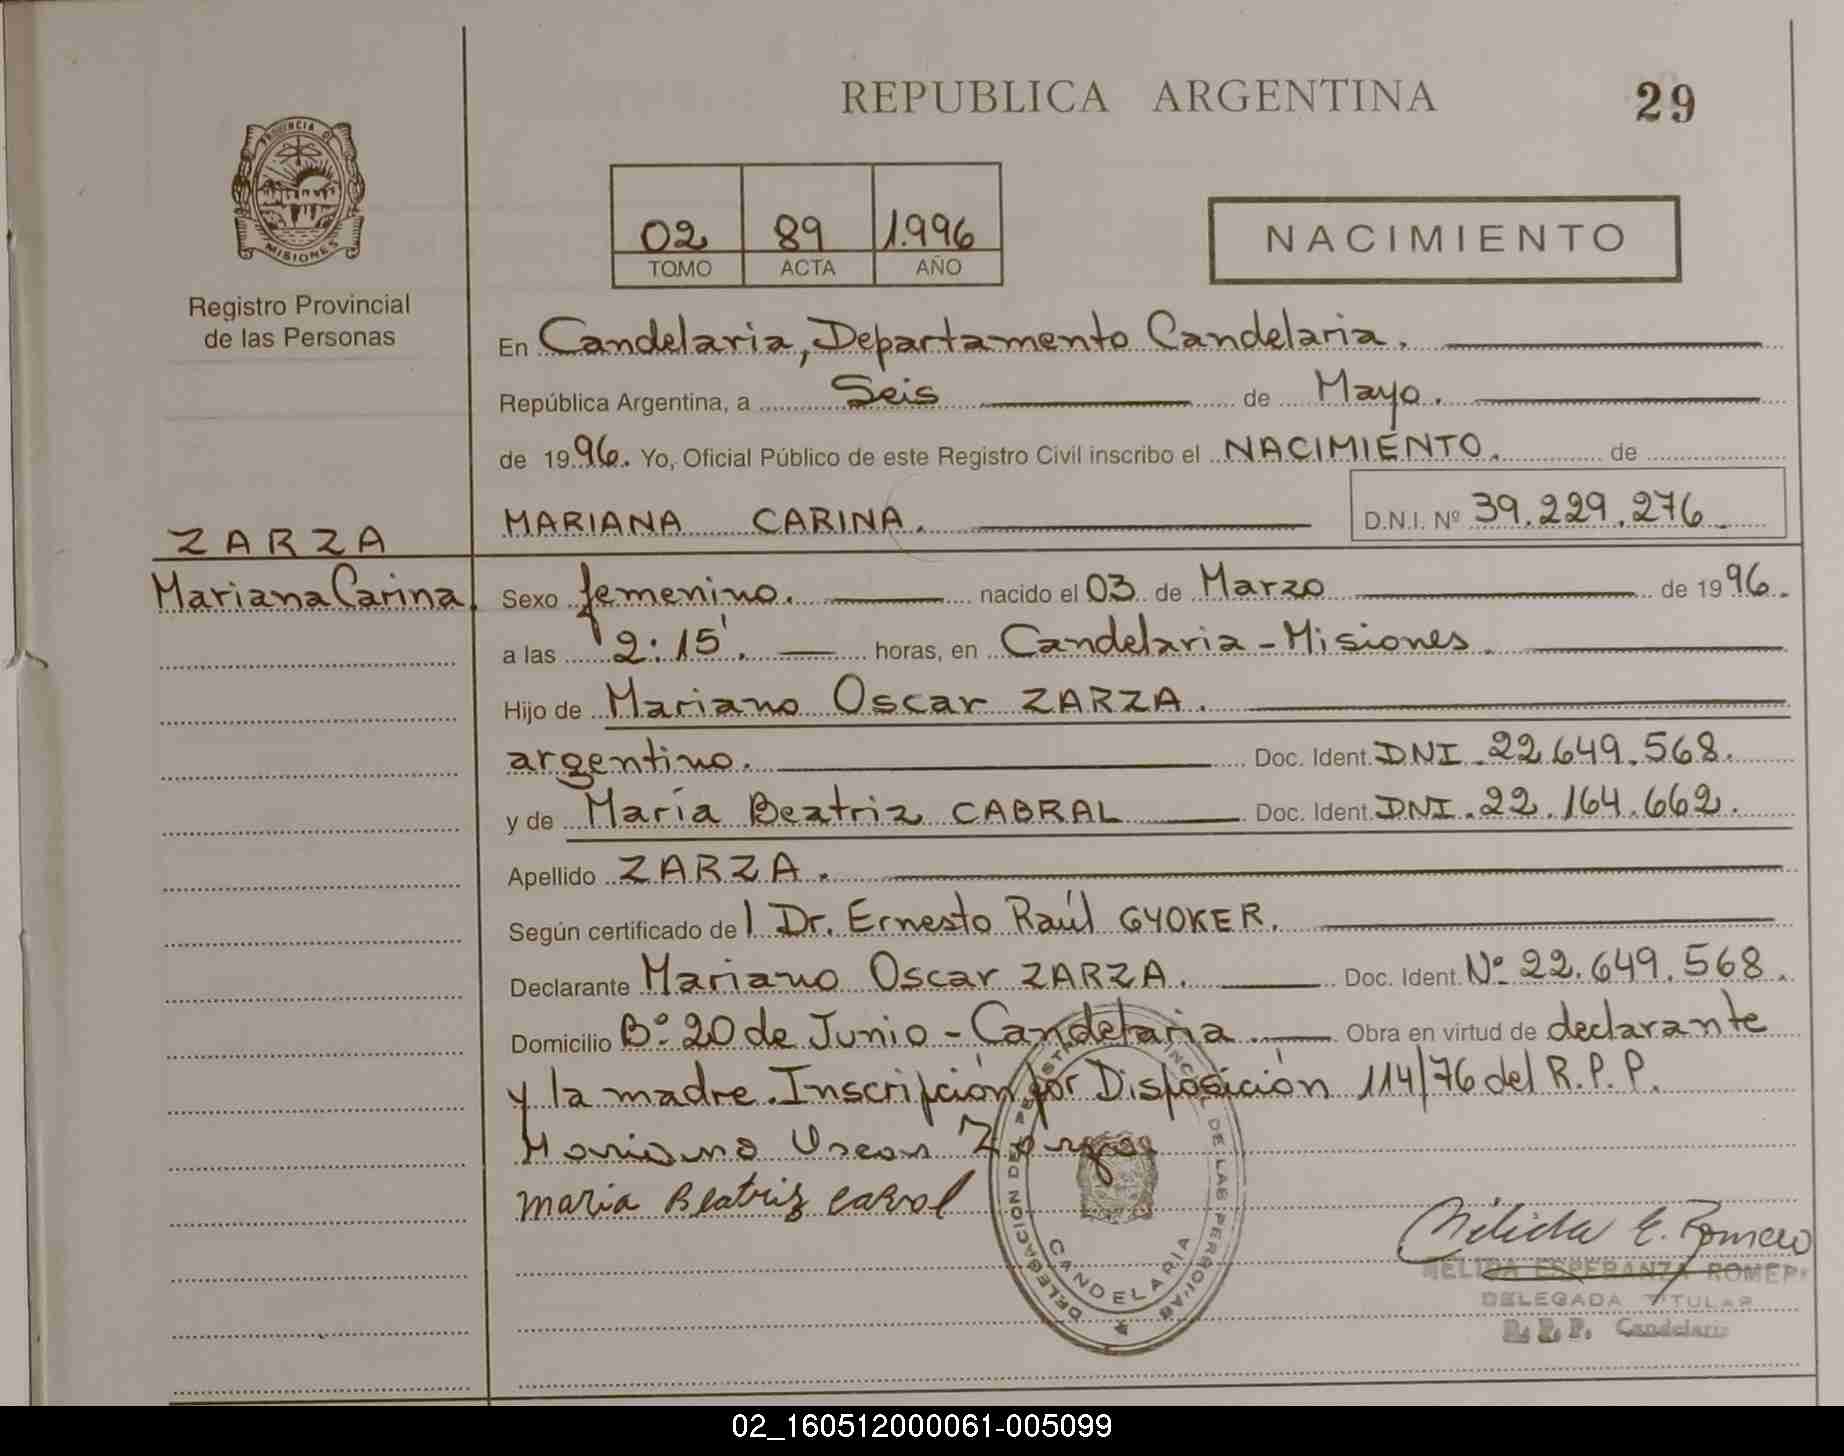 REPUBLICA ARGENTINA
29
PROVINCIA DE
MISIONES
Registro Provincial
de las Personas
02 89 1.996
TOMO ACTA AÑO
NACIMIENTO
En Candelaria, Departamento Candelaria.
República Argentina, a Seis de Mayo.
de 1996. Yo, Oficial Público de este Registro Civil inscribo el NACIMIENTO. de
MARIANA CARINA. D.N.I. Nº 39.229.276
ZARZA
Mariana Carina.
Sexo femenino. nacido el 03 de Marzo de 1996.
a las 2:15'. horas, en Candelaria - Misiones.
Hijo de Mariano Oscar ZARZA.
argentino. Doc. Ident. DNI. 22.649.568.
y de María Beatriz CABRAL Doc. Ident. DNI. 22.164.662.
Apellido ZARZA.
Según certificado de l Dr. Ernesto Raúl GYOKER.
Declarante Mariano Oscar ZARZA. Doc. Ident. Nº 22.649.568.
Domicilio Bº 20 de Junio - Candelaria. Obra en virtud de declarante
y la madre. Inscripción por Disposición 114/76 del R.P.P.
Mariano Oscar Zarza
maria Beatriz cabral
DE LAS PERSONAS
DELEGACION
CANDELARIA
Nélida E. Romero
NELIDA ESPERANZA ROMERO
DELEGADA TITULAR
R. P. P. Candelaria
02_160512000061-005099